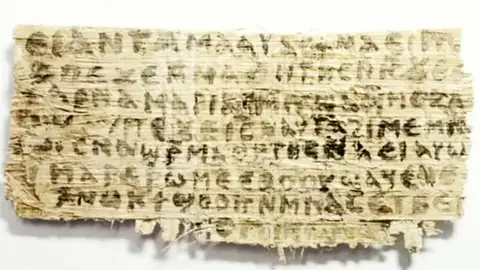 ⲉⲓ ⲁⲛ ⲧⲁⲙⲁⲁⲩ ⲁⲥϯ ⲛⲁⲉⲓ ⲡ
ⲡⲉϫⲉ ⲙⲙⲁⲑⲏⲧⲏⲥ ⲛⲓ̅ⲥ̅ ϫⲉ
ⲁⲣⲛⲁ ⲙⲁⲣⲓⲁⲙ ⲙⲡϣⲁ ⲙⲙⲟⲥ ⲁ
ⲡⲉϫⲉ ⲓ̅ⲥ̅ ⲛⲁⲩ ⲧⲁϩⲓⲙⲉ ⲙⲛ
ⲥⲛⲁϣⲣⲙⲁⲑⲏⲧⲏⲥ ⲛⲁⲉⲓ ⲁⲩⲱ
ⲓ ⲙⲁⲣⲉⲣⲱⲙⲉ ⲉⲑⲟⲟⲩ ϣⲁϥⲉ ⲛⲉ
ⲁⲛⲟⲕ ϯϣⲟⲟⲡ ⲛⲙⲙⲁⲥ ⲉⲧⲃⲉ